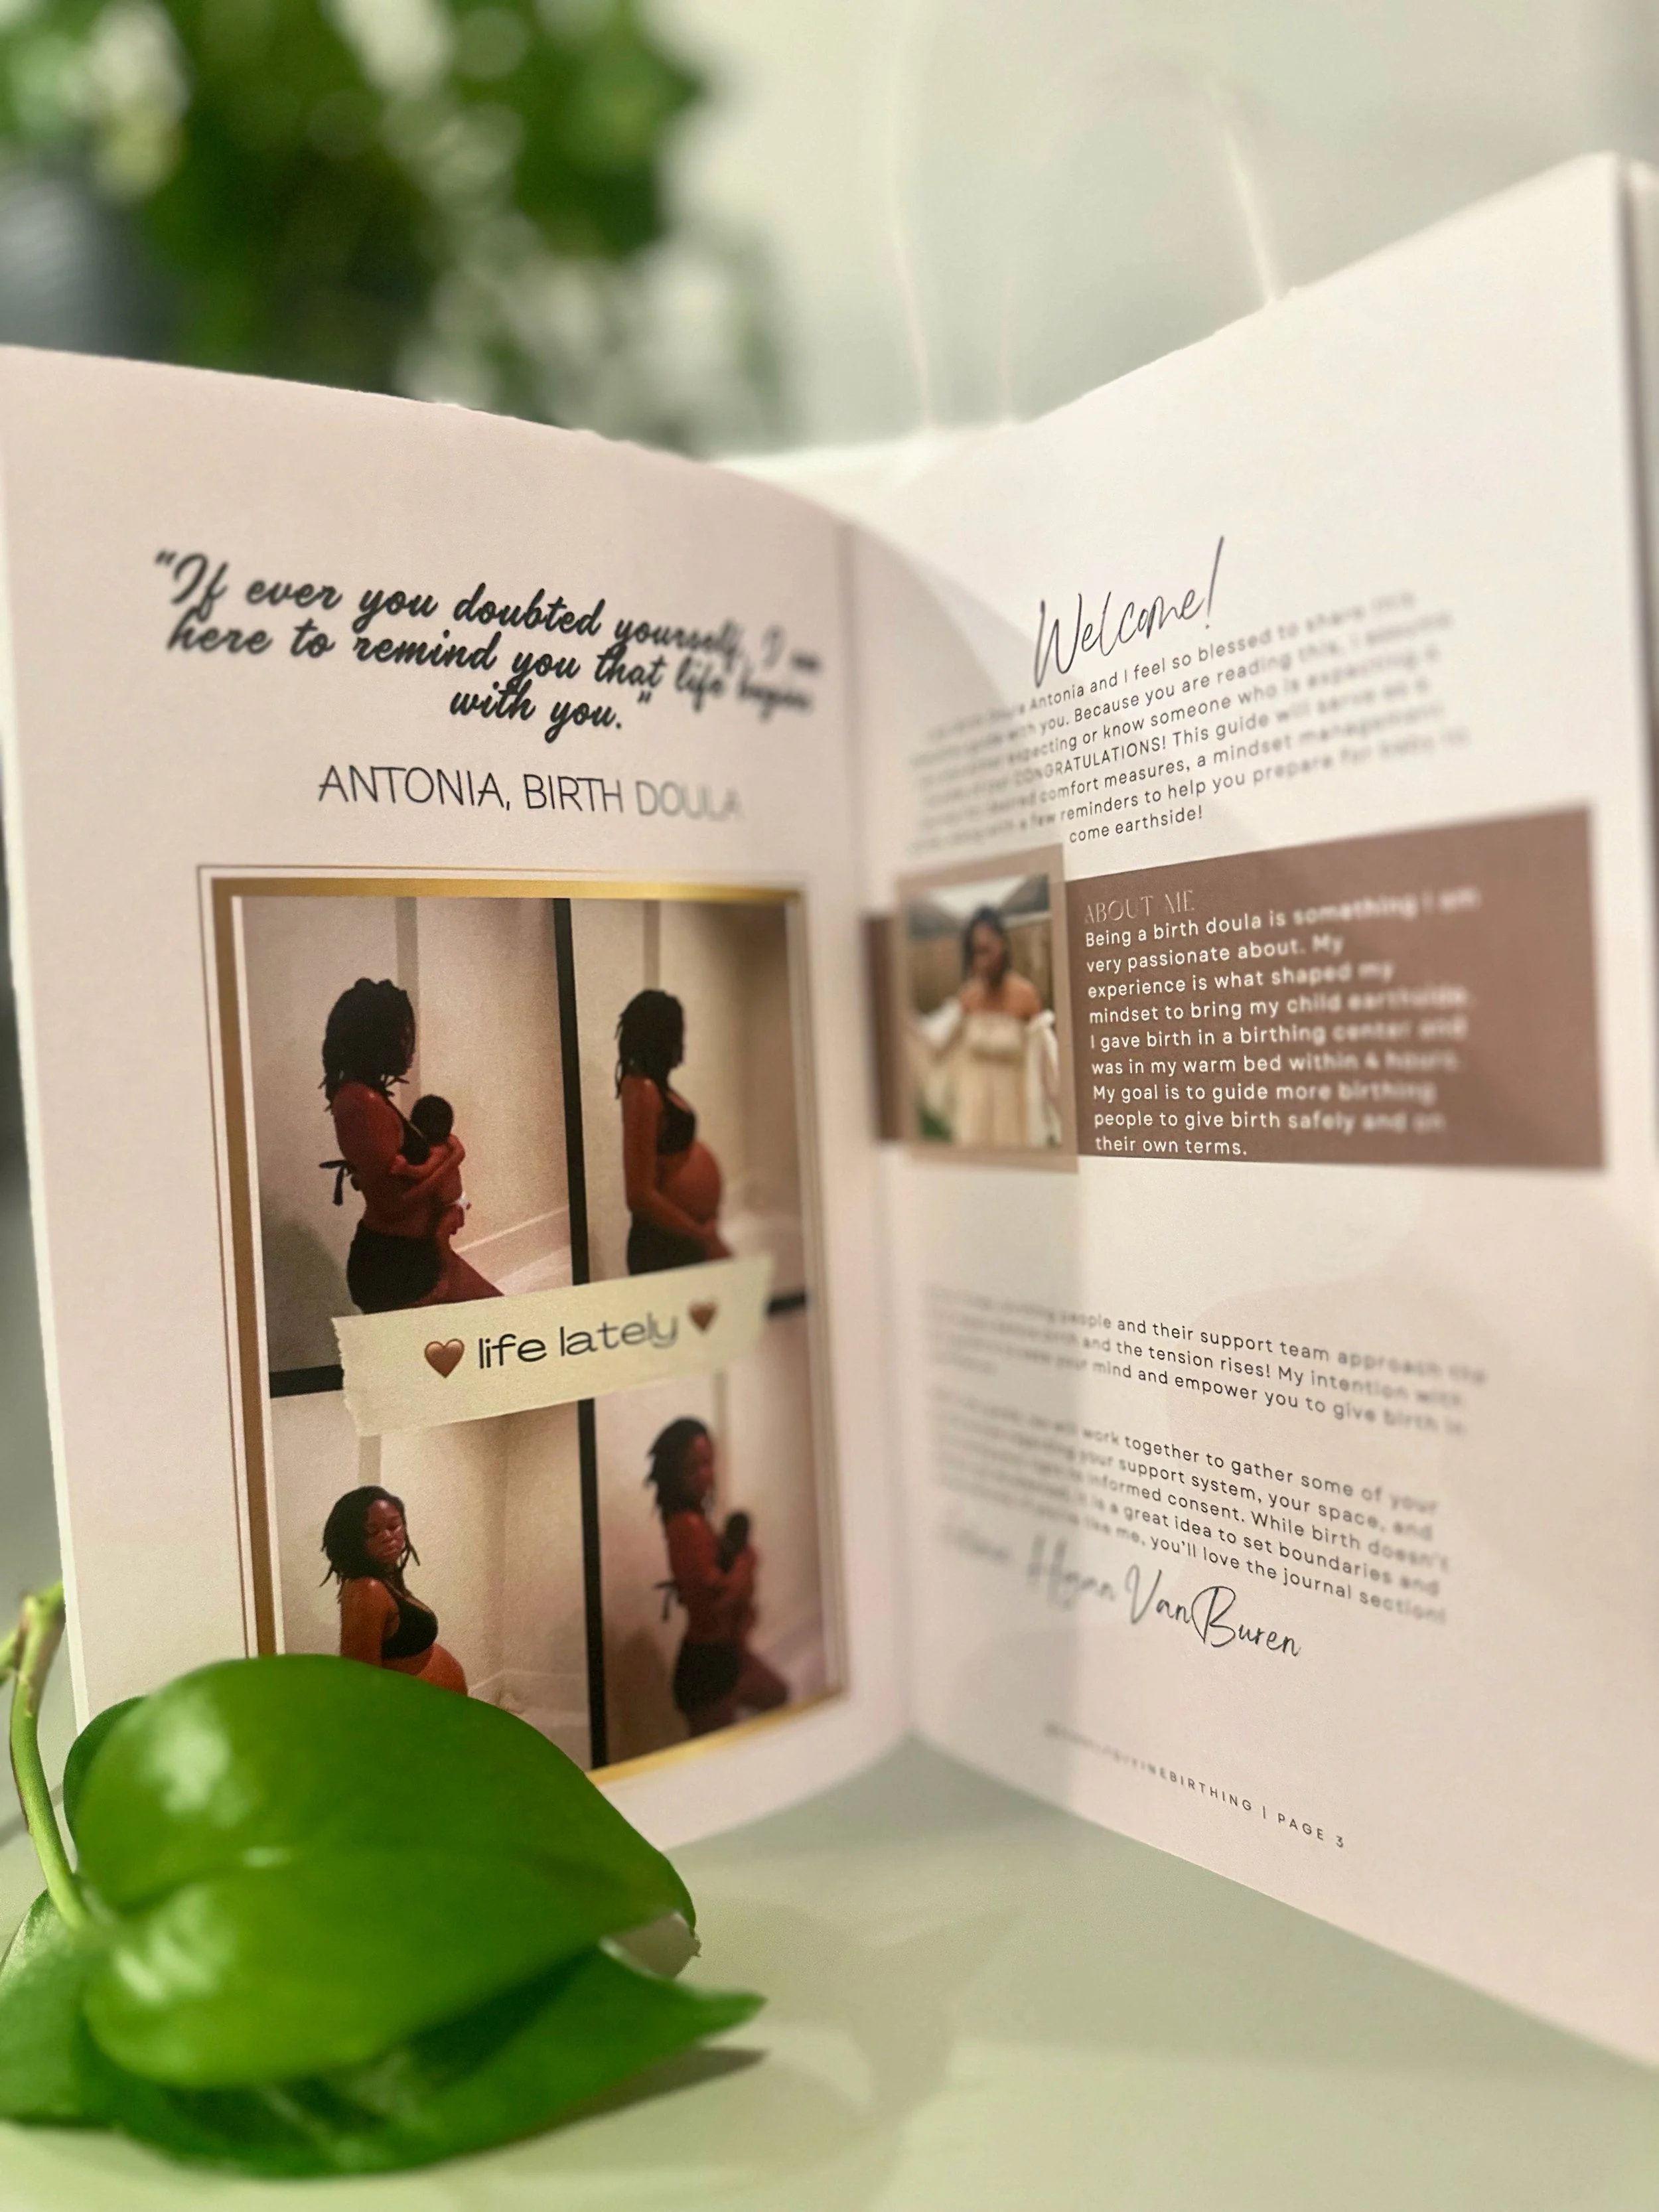 "If ever you doubted yourself, I am
here to remind you that life began
with you."
ANTONIA, BIRTH DOULA
life lately
Welcome!
Antonia and I feel so blessed to share this
with you. Because you are reading this, I assume
expecting or know someone who is expecting a
CONGRATULATIONS! This guide will serve as a
desired comfort measures, a mindset management
with a few reminders to help you prepare for baby to
come earthside!
ABOUT ME
Being a birth doula is something I am
very passionate about. My
experience is what shaped my
mindset to bring my child earthside.
I gave birth in a birthing center and
was in my warm bed within 4 hours.
My goal is to guide more birthing
people to give birth safely and on
their own terms.
people and their support team approach the
and the tension rises! My intention with
your mind and empower you to give birth in
work together to gather some of your
your support system, your space, and
informed consent. While birth doesn't
it is a great idea to set boundaries and
like me, you'll love the journal section!
VanBuren
BIRTHING | PAGE 3